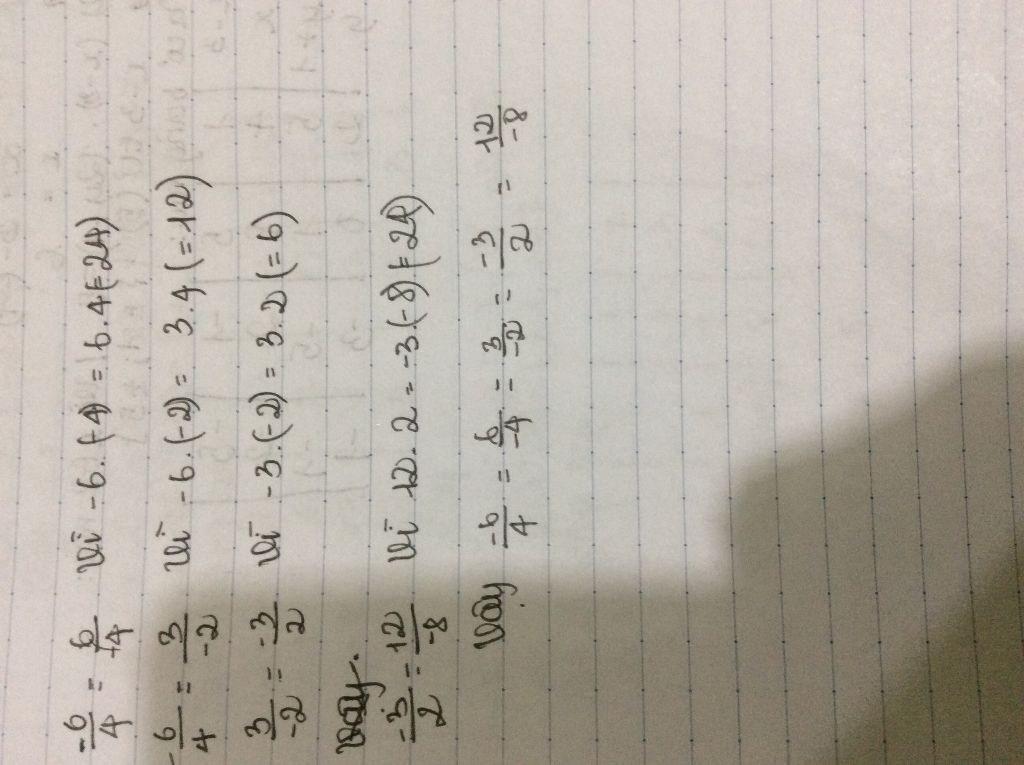 -6/4 = 6/-4 Vì -6.(-4) = 6.4(=24)
-6/4 = 3/-2 Vì -6.(-2) = 3.4(=12)
3/-2 = -3/2 Vì -3.(-2) = 3.2(=6)
-3/2 = 12/-8 Vì 12.2 = -3.(-8)(=24)
Vậy -6/4 = 6/-4 = 3/-2 = -3/2 = 12/-8